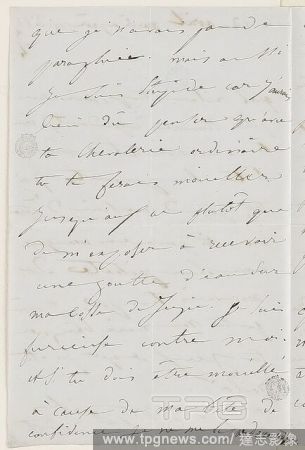 que je n'avais pas de
parapluie. mais aussi
je suis stupide car j'aurais
bien dû penser qu'avec
ta chevalerie ordinaire
tu te ferais mouiller
jusqu'aux os plutôt que
de m'exposer à recevoir
une goutte d'eau sur
ma
furieuse contre moi.
si tu dois être mouillé
à cause de ma bête de
confidence je ne me le
TPG
www.tpgnews.com/達志影像